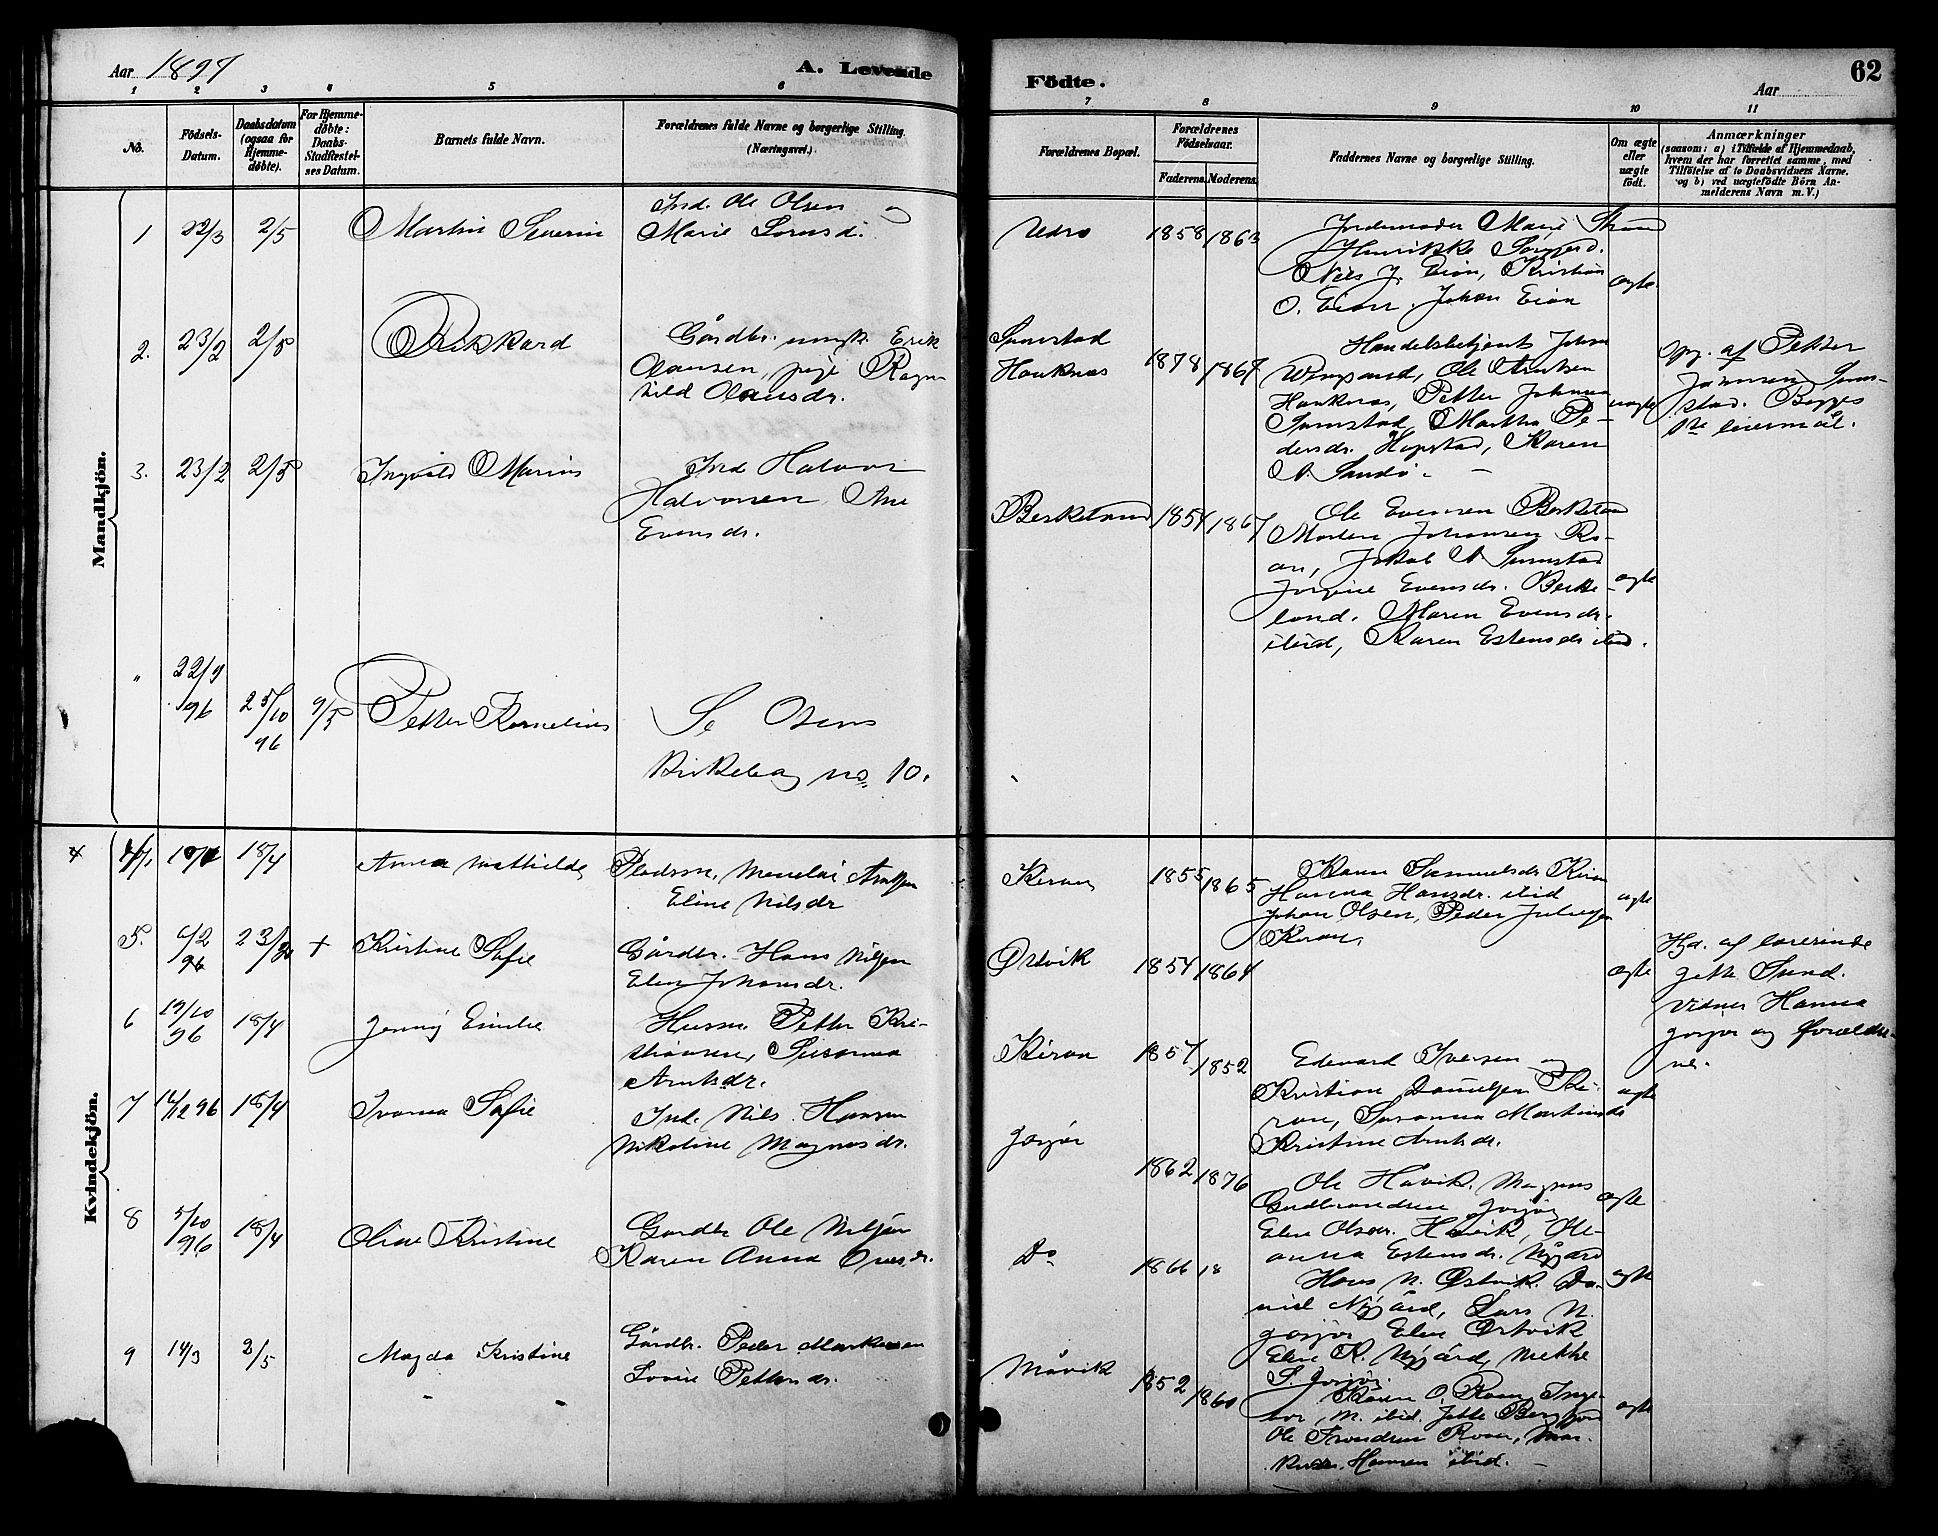 Aar 1897
A. Levende
Födte.
62
Aar
1 2 3 4 5 6 7 8 9 10 11
No.
Födsels-
Datum.
Daabsdatum
(ogsaa for
Hjemme-
döbte).
For Hjemme-
döbte:
Daabs-
Stadfæstel-
ses Datum.
Barnets fulde Navn.
Forældrenes fulde Navne og borgerlige Stilling.
(Næringsvei.)
Forældrenes Bopæl.
Forældrenes
Födselsaar.
Faderens. Moderens.
Faddernes Navne og borgerlige Stilling.
Om ægte
eller
uægte
födt.
Anmærkninger
(saasom: a) i Tilfælde af Hjemmedaab,
hvem der har forrettet samme, med
Tilföielse af to Daabsvidners Navne.
og b) ved uægtefödte Börn An-
melderens Navn m. V.)
Mandkjön.
1 22/3 2/5 Martin Severin
Ind. Ole Olsen og
Marie
1858 1863
Jordemoder Marie Strand
Henrikke
Nils J. Eion, Kristian
O. Eion, Johan Eion
ægte.
2. 23/2 2/5 Rikkard
Gårdbr. ungk. Erik
Olausen, pige Ragn
hild Olausdr.
Sumstad
Hauknæs
1878 1867
Handelsbetjent Johan
Ole Arntsen
Hauknæs, Petter Johnsen
Sumstad, Martha Pe-
dersdr. Hopstad, Karen
A. Sandö.
uægte
Opg. af Petter
Johnsen Sum-
stad. Begges
1ste leiermål.
3. 23/2 2/5 Ingvald Marius
Ind Halvor
Halvorsen, Ane
Evensdr.
Berkeland 1854 1867
Ole Evensen Berkeland
Morten Johansen Ro-
an, Jakob A. Sumstad
Jorgine Evensdr. Berke-
land. Maren Evensdr.
ibid, Karen Estensdr ibid.
ægte
" 22/9
96
25/10
96
9/5 Petter Kornelius
Se Osens
Kirkebog no. 10.
Kvindekjön.
4 18/4 Anna Mathilde
Pladsm. Arntsen
Eline Nilsdr
Kiran 1855 1865
Karen Samuelsdr Kiran
Hanna Hansdr. ibid
Johan Olsen, Peder
Kiran,
ægte
5. 6/2
96
+ Kristine Sofie
Gårdbr. Hans Nilsen
Elen Johansdr.
Ørtvik 1854 1864
ægte
Hjd. af lærerinde
Jette Sund.
vidner Hanna
Josjor og forældre-
ne.
6 19/10
96
18/4 Jenny Emelie
Husm. Petter Kri-
stiansen, Susanna
Arntsdr.
Kiran 1857 1852
Edevard Iversen og
Kristian Danielsen Ki-
ran, Susanna Martinsdr
Kristine Arntsdr.
ægte
7 14/12 96 18/4 Ivanna Sofie
Ind. Nils Hansen
Nikoline Magnusdr.
Josjor
1862 1876
Ole Håvik, Magnus
Gudbrandsen Josjor
Elen Olsdr. Håvik, Ole-
anna Estensdr. Nygård
ægte
8 5/10
96
18/4 Oline Kristine
Gårdbr Ole Nilsen
Karen Anna
Do 1866 18
Hans N. Ørtvik. Da-
niel Nygård, Lars N.
Josjor Elen Ørtvik
Elen K. Nygård, Mekke
S. Josjor.
ægte
9 14/3 2/5 Magda Kristine
Gårdbr. Peder Markussen
Lovise Pettersdr.
Måvik
1852 1860
Karen O. Roan Inge-
bor, M. ibid. Jette
Ole Trondsen Roan, Mar-
kus Hansen ibid.
ægte